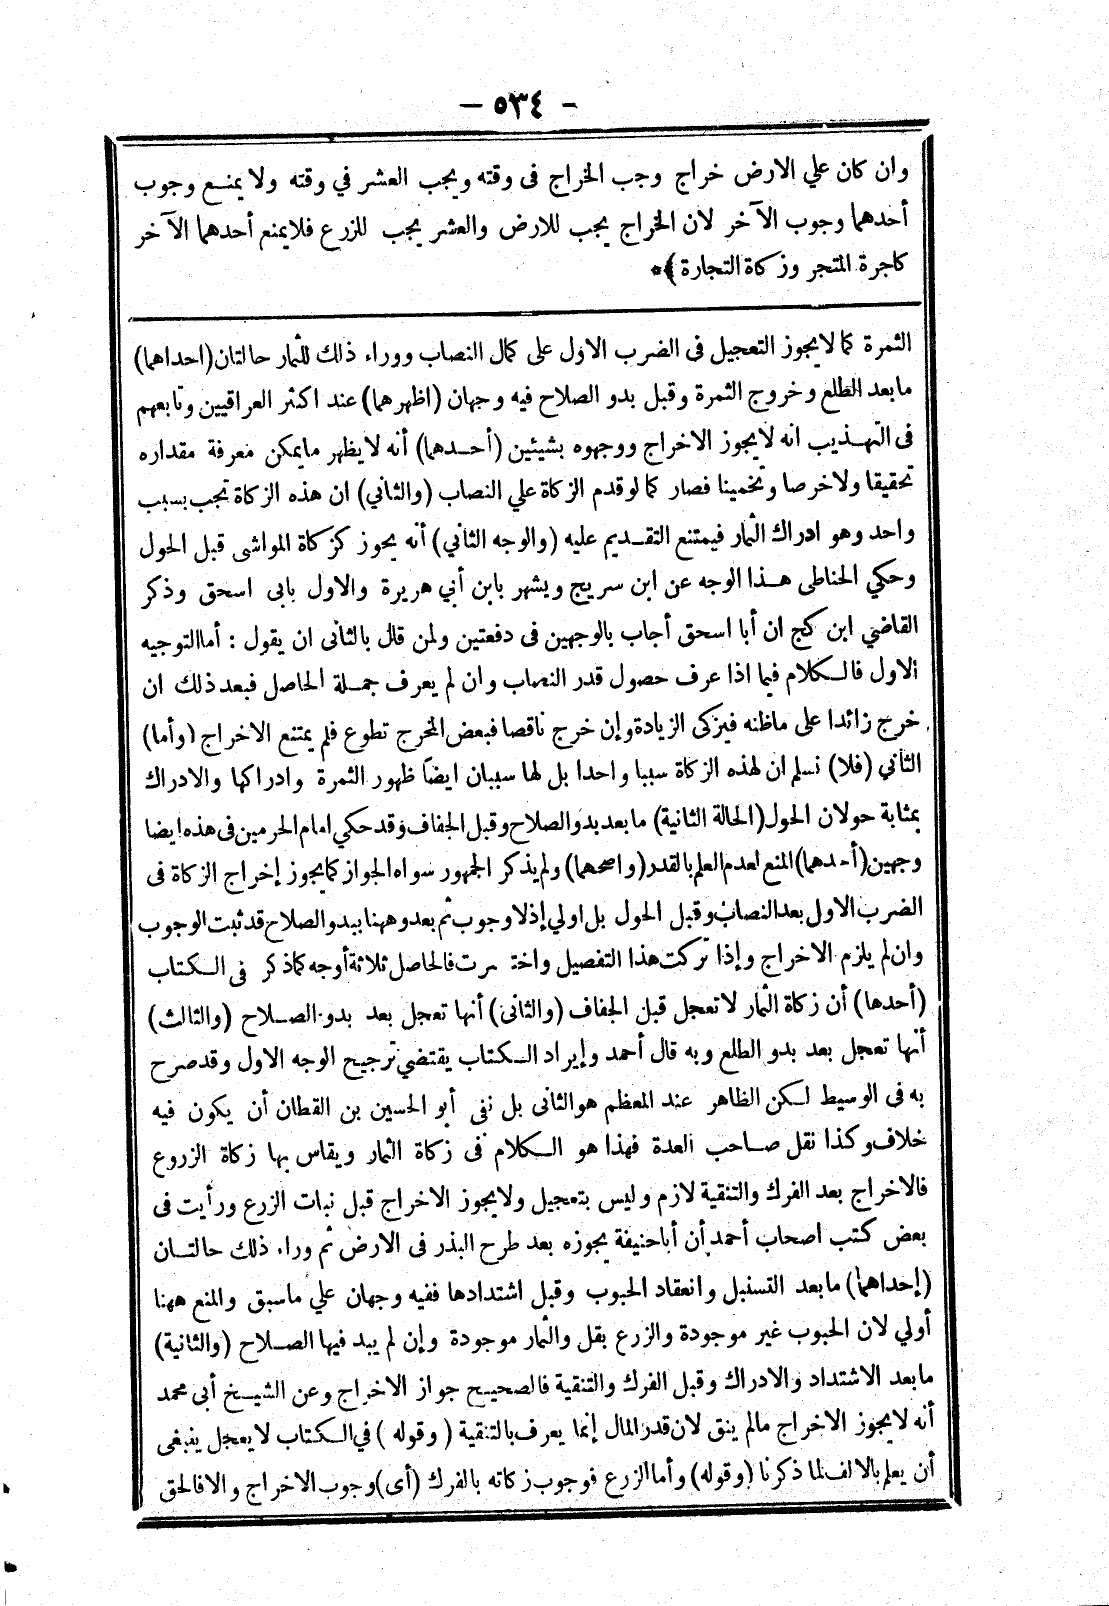 - ٥٣٤ -
وان كان علي الارض خراج وجب الخراج فى وقته ويجب العشر في وقته ولا يمنع وجوب
أحدهما وجوب الآخر لان الخراج يجب للارض والعشر يجب للزرع فلا يمنع أحدهما الآخر
كاجرة المتجر وزكاة التجارة ﴾*
الثمرة كما لا يجوز التعجيل فى الضرب الاول على كمال النصاب ووراء ذلك للثمار حالتان (احداهما)
ما بعد الطلع وخروج الثمرة وقبل بدو الصلاح فيه وجهان (اظهرهما) عند اكثر العراقيين وتابعهم
فى التهذيب انه لا يجوز الاخراج ووجهوه بشيئين (أحدهما) أنه لا يظهر ما يمكن معرفة مقداره
تحقيقا ولا خرصا وتخمينا فصار كما لو قدم الزكاة علي النصاب (والثاني) ان هذه الزكاة تجب بسبب
واحد وهو ادراك الثمار فيمتنع التقديم عليه (والوجه الثاني) أنه يجوز كزكاة المواشى قبل الحول
وحكي الحناطى هذا الوجه عن ابن سريج ويشهر بابن أبي هريرة والاول بابى اسحق وذكر
القاضي ابن كج ان أبا اسحق أجاب بالوجهين فى دفعتين ولمن قال بالثانى ان يقول : أما التوجيه
الاول فالكلام فيما اذا عرف حصول قدر النصاب وان لم يعرف جملة الحاصل فبعد ذلك ان
خرج زائدا على ماظنه فيزكى الزيادة وإن خرج ناقصا فبعض المخرج تطوع فلم يمتنع الاخراج (وأما)
الثاني (فلا) نسلم ان لهذه الزكاة سببا واحدا بل لها سببان ايضا ظهور الثمرة وادراكها والادراك
بمثابة حولان الحول (الحالة الثانية) ما بعد بدو الصلاح وقبل الجفاف وقد حكي امام الحرمين فى هذه ايضا
وجهين (أحدهما) المنع لعدم العلم بالقدر (واصحهما) ولم يذكر الجمهور سواه الجواز كما يجوز إخراج الزكاة فى
الضرب الاول بعد النصاب وقبل الحول بل اولي إذ لا وجوب ثم بعد وههنا ببدو الصلاح قد ثبت الوجوب
وان لم يلزم الاخراج وإذا تركت هذا التفصيل واختصرت فالحاصل ثلاثة أوجه كما ذكر فى الكتاب
(أحدها) أن زكاة الثمار لا تعجل قبل الجفاف (والثانى) أنها تعجل بعد بدو الصلاح (والثالث)
أنها تعجل بعد بدو الطلع وبه قال أحمد وإيراد الكتاب يقتضي ترجيح الوجه الاول وقد صرح
به فى الوسيط لكن الظاهر عند المعظم هو الثانى بل نفى أبو الحسين بن القطان أن يكون فيه
خلاف وكذا نقل صاحب العدة فهذا هو الكلام فى زكاة الثمار ويقاس بها زكاة الزروع
فالاخراج بعد الفرك والتنقية لازم وليس بتعجيل ولا يجوز الاخراج قبل نبات الزرع ورأيت فى
بعض كتب اصحاب أحمد أن أبا حنيفة يجوزه بعد طرح البذر فى الارض ثم وراء ذلك حالتان
(إحداهما) ما بعد التسنبل وانعقاد الحبوب وقبل اشتدادها ففيه وجهان علي ماسبق والمنع ههنا
أولي لان الحبوب غير موجودة والزرع بقل والثمار موجودة وإن لم يبد فيها الصلاح (والثانية)
ما بعد الاشتداد والادراك وقبل الفرك والتنقية فالصحيح جواز الاخراج وعن الشيخ أبى محمد
أنه لا يجوز الاخراج مالم ينق لان قدر المال إنما يعرف بالتنقية (وقوله ) في الكتاب لا يعجل ينبغى
أن يعلم بالالف لما ذكرنا (وقوله) وأما الزرع فوجوب زكاته بالفرك (أى) وجوب الاخراج والا فالحق